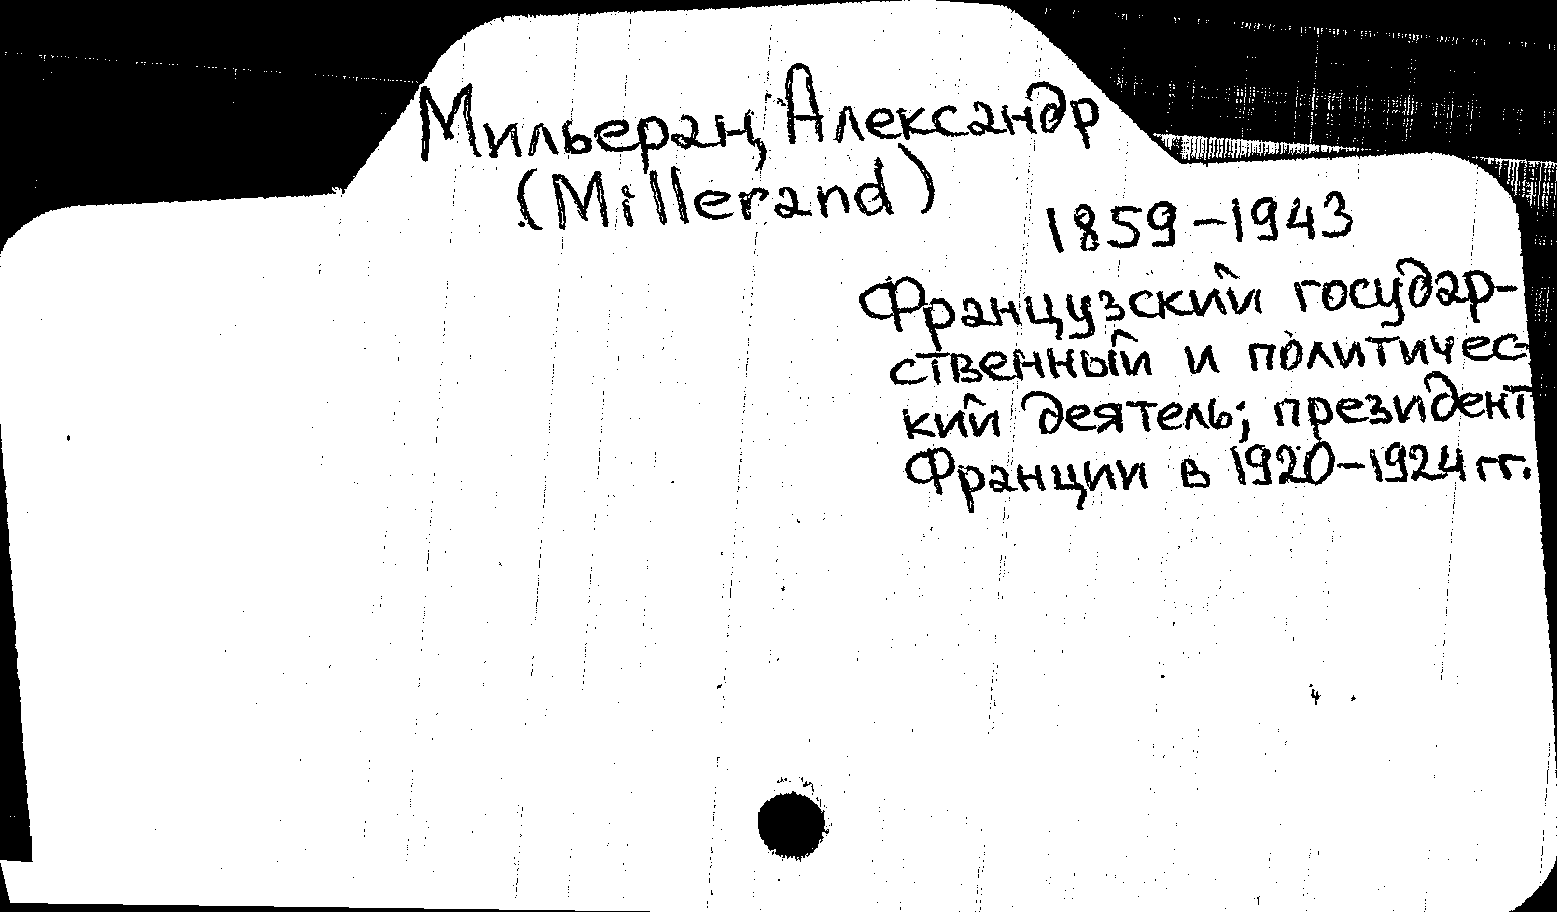 Мильеран, Александр
(Millerand)
1859-1943
Французский государ-
ственный и политичес-
кий деятель; президент
Франции в 1920-1924 гг.